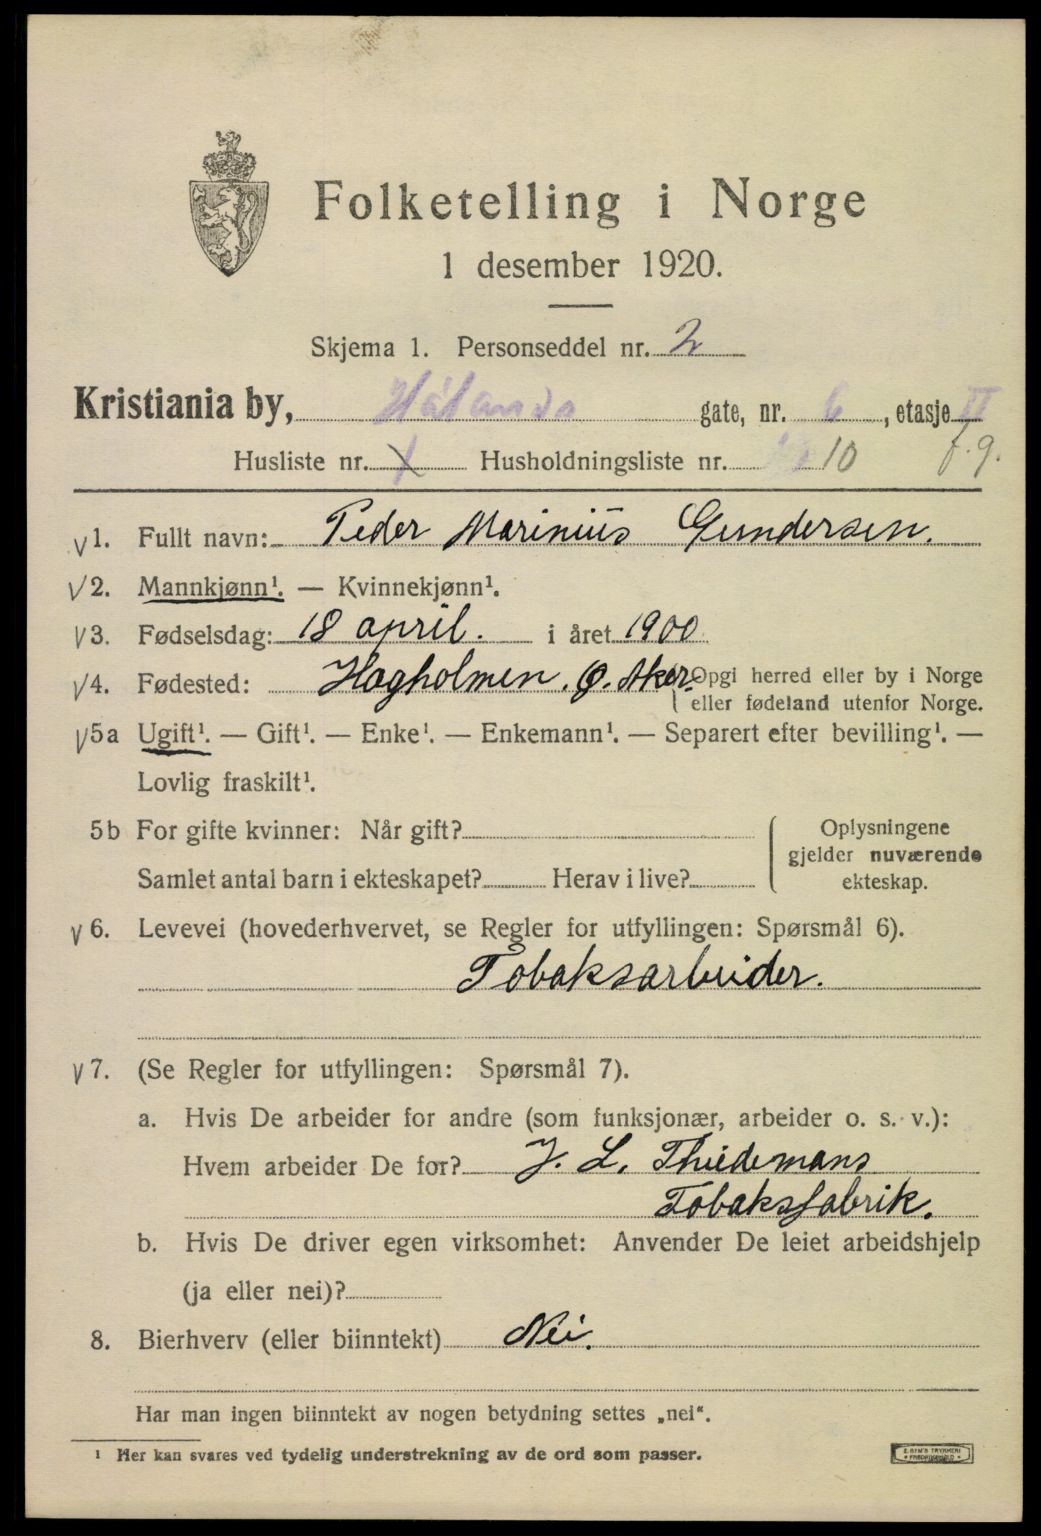 Folketelling i Norge
1 desember 1920.
Skjema 1. Personseddel nr. 2
Kristiania by, Hålands gate, nr. 6, etasje II
Husliste nr. Husholdningsliste nr. 10 f. 9.
v 1. Fullt navn: Peder Marinius Gundersen.
v 2. Mannkjønn¹. — Kvinnekjønn¹.
v 3. Fødselsdag: 18 april. i året 1900
v 4. Fødested: Hagholmen. Ø. Aker. Opgi herred eller by i Norge
eller fødeland utenfor Norge.
v 5a Ugift¹. — Gift¹. — Enke¹. — Enkemann¹. — Separert efter bevilling¹. —
Lovlig fraskilt¹.
5b For gifte kvinner: Når gift?
Samlet antal barn i ekteskapet? Herav i live?
Oplysningene
gjelder nuværende
ekteskap.
v 6. Levevei (hovederhvervet, se Regler for utfyllingen: Spørsmål 6).
Tobaksarbeider.
v 7. (Se Regler for utfyllingen: Spørsmål 7).
a. Hvis De arbeider for andre (som funksjonær, arbeider o. s. v.):
Hvem arbeider De for? J. L. Thiedemans
Tobaksfabrik.
b. Hvis De driver egen virksomhet: Anvender De leiet arbeidshjelp
(ja eller nei)?
8. Bierhverv (eller biinntekt) Nei.
Har man ingen biinntekt av nogen betydning settes „nei“.
¹ Her kan svares ved tydelig understrekning av de ord som passer.